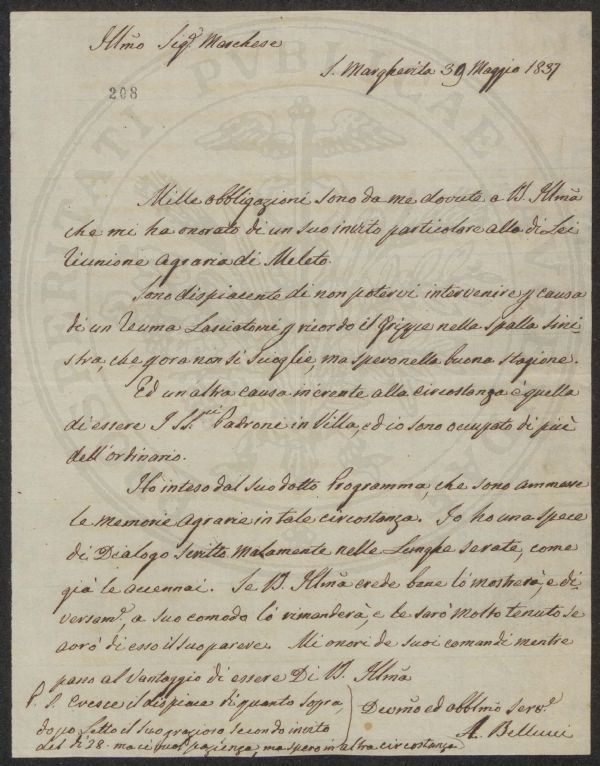 Illmo Sigr Marchese
S. Margherita 30 Maggio 1837
208
Mille obbligazioni sono da me dovute a V. Illma
che mi ha onorato di un suo invito particolare alla di Lei
riunione agraria di Meleto.
Sono dispiacente di non potervi intervenire p causa
di un reuma Lasciatomi p ricordo il Grippe nella spalla sini=
stra, che p ora non si scioglie, ma spero nella buona stagione.
Ed un altra causa inerente alla circostanza è quella
di essere I SS.ri Padroni in Villa, ed io sono occupato di più
dell'ordinario.
Ho inteso dal suo dotto Programma, che sono ammesse
le memorie agrarie in tale circostanza. Io ho una spece
di Dialogo scritto malamente nelle Lunghe serate, come
già le accennai. Se V. Illma crede bene lo mostrerà, e di=
versamte, a suo comodo lo rimanderà, e le sarò molto tenuto se
avrò di esso il suo parere. Mi onori de suoi comandi mentre
passo al vantaggio di essere Di V. Illma
P. S. Cresce il dispiace di quanto sopra,
dopo Letto il suo grazioso secondo invito
del dì 28. ma ci vuol pazienza, ma spero in altra circostanza
Devmo ed obblmo servre
A. Bellucci